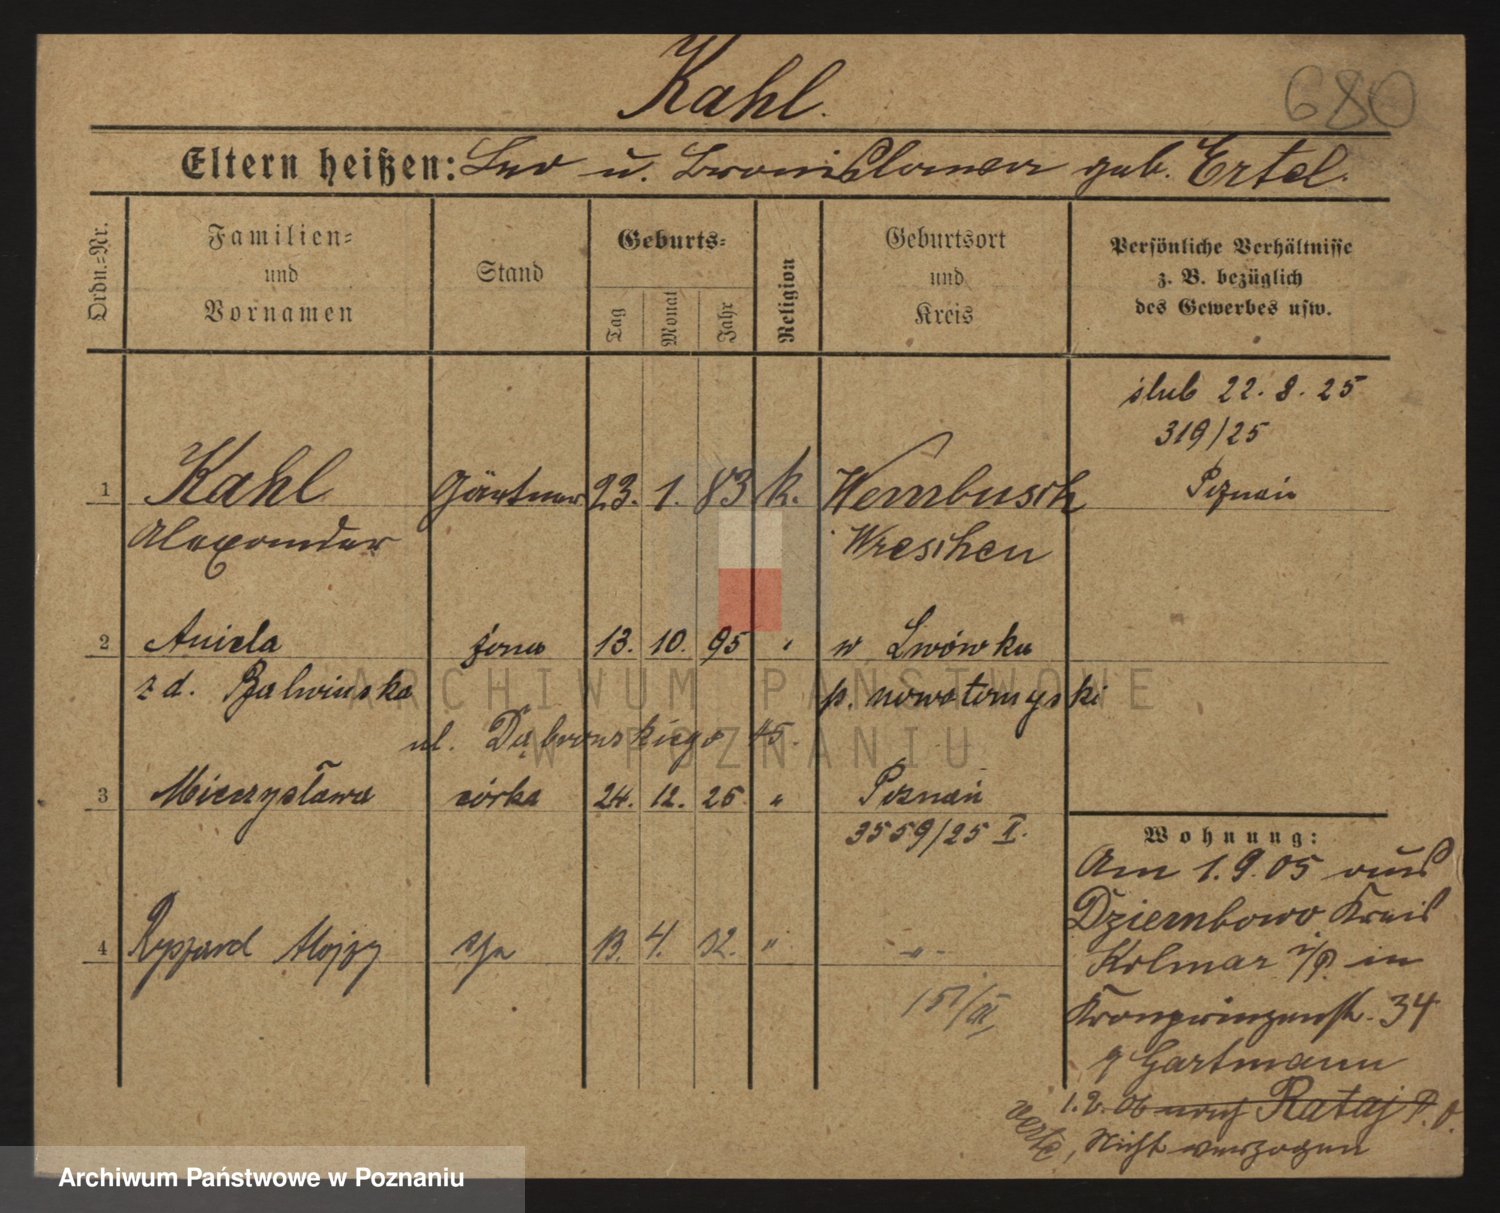 Kahl.
680
Eltern heißen: Leo u. Bronislawa geb. Ertel.
Ordn.-Nr.
Familien- und Vornamen
Stand
Geburts-
Tag
Monat
Jahr
Religion
Geburtsort und Kreis
Persönliche Verhältnisse z. B. bezüglich des Gewerbes usw.
ślub 22. 8. 25
319/25
Poznań
1 Kahl Gärtner 23. 1. 83 k. Wembusch
Alexander Wreschen
2 Aniela żona 13. 10. 95 " w Lwówku
z d. Balwińska p. nowotomyski
ul. Dąbrowskiego 45.
3 Mieczysława córka 24. 12. 25 " Poznań
3559/25 I.
4 Ryszard Alojzy syn 13. 4. 32. " -"-
Wohnung:
Am 1.9.05 aus
Dziembowo Kreis
Kolmar i/P. in
Kronprinzenstr. 34
Gartmann
1.2.06 nach Rataj P. O.
verte, Nicht verzogen
ARCHIWUM PAŃSTWOWE
W POZNANIU
Archiwum Państwowe w Poznaniu